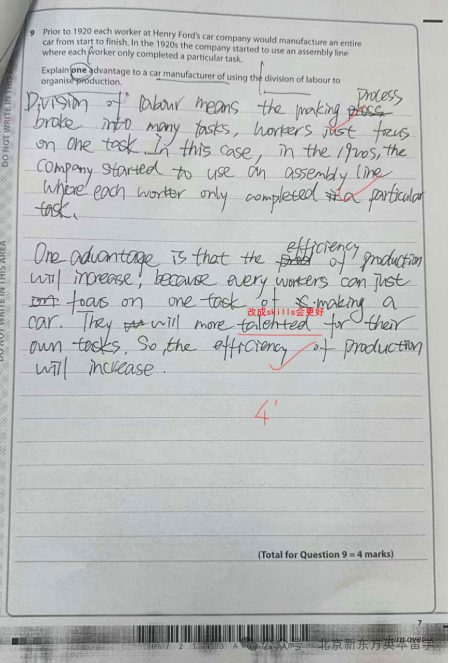 9 Prior to 1920 each worker at Henry Ford's car company would manufacture an entire
car from start to finish. In the 1920s the company started to use an assembly line
where each worker only completed a particular task.
Explain one advantage to a car manufacturer of using the division of labour to
organise production.
process
Division of labour means the making
broke into many tasks, workers just focus
on one task. In this case, in the 1920s, the
company started to use an assembly line
where each worker only completed a particular
task.
efficiency
One advantage is that the of production
will increase, because every workers can just
focus on one task of making a
改成skills会更好
car. They will more talented for their
own tasks. So, the efficiency of production
will increase.
4'
(Total for Question 9 = 4 marks)
7
DO NOT WRITE IN THIS AREA
北京新东方英本留学